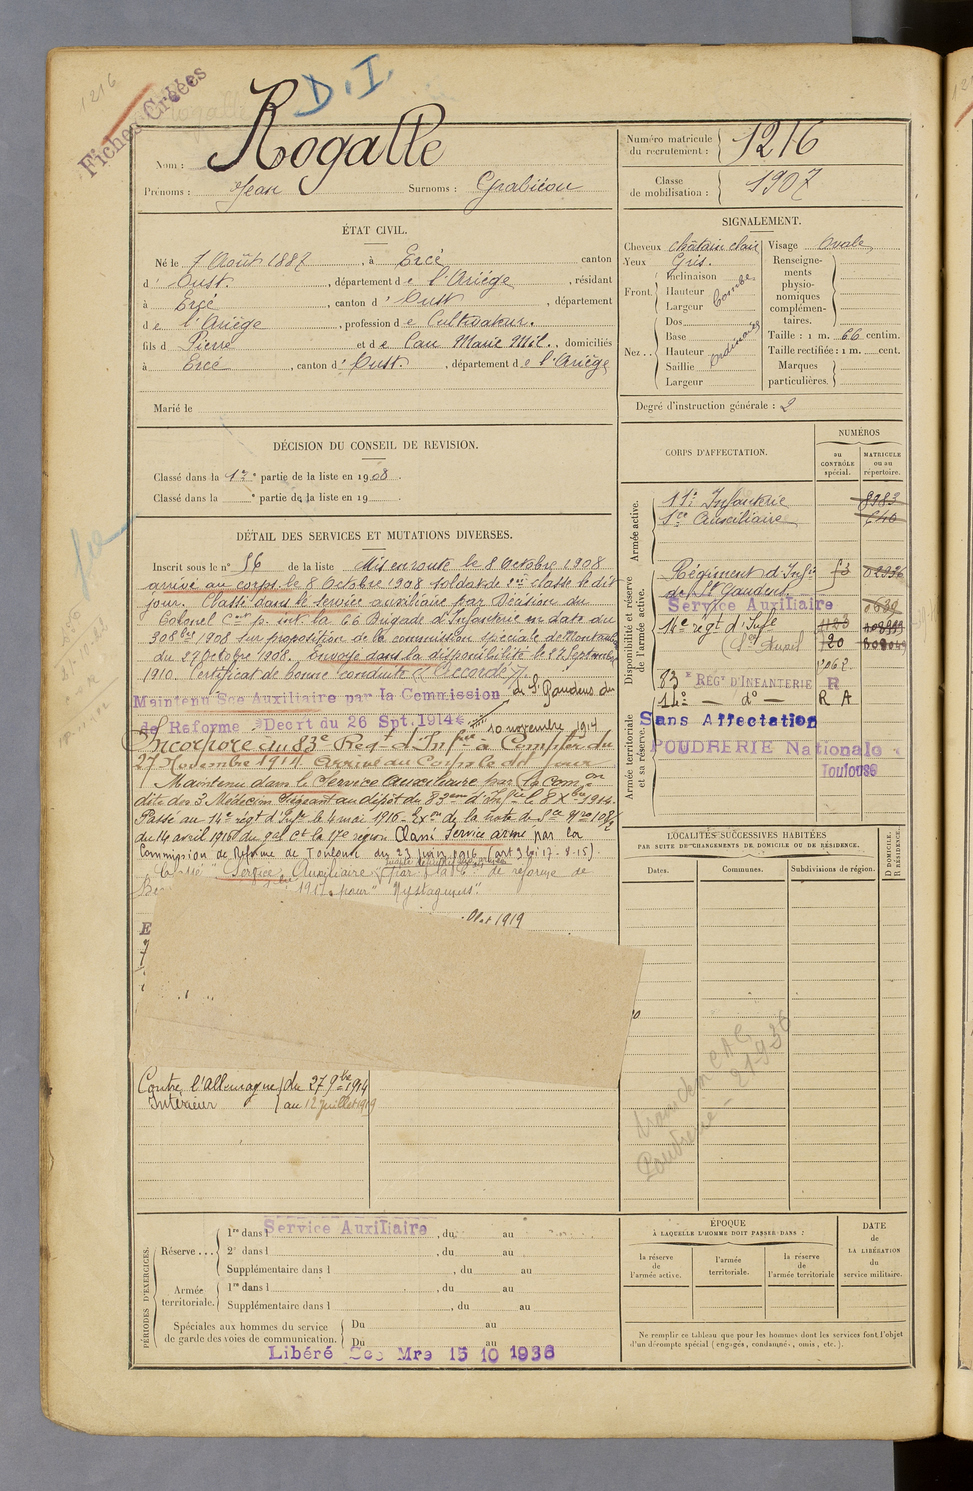 1216
Fiches Créées
D.I.
Nom : Rogalle
Prénoms : Jean Surnoms : Grabiéou
Numéro matricule du recrutement : 1216
Classe de mobilisation : 1907
ÉTAT CIVIL.
Né le 7 Août 1887, à Ercé canton
d' Oust, département de l'Ariège, résidant
à Ercé, canton d' Oust, département
de l'Ariège, profession de Cultivateur.
fils d Pierre et de Cau Marie Mil., domiciliés
à Ercé, canton d' Oust, département de l'Ariège
Marié le
SIGNALEMENT.
Cheveux châtain clair
Yeux Gris.
Front Inclinaison
Hauteur
Largeur
bombé
Nez Dos
Base
Hauteur
Saillie
Largeur
ordinaire
Visage Ovale
Renseignements physionomiques complémentaires.
Taille : 1 m. 66 centim.
Taille rectifiée : 1 m. cent.
Marques particulières.
Degré d'instruction générale : 2
DÉCISION DU CONSEIL DE REVISION.
Classé dans la 1re partie de la liste en 1908.
Classé dans la e partie de la liste en 19
DÉTAIL DES SERVICES ET MUTATIONS DIVERSES.
Inscrit sous le n° 56 de la liste Mis en route le 8 Octobre 1908
arrivé au corps le 8 Octobre 1908 soldat de 2me classe le dit
jour. Classé dans le service auxiliaire par Décision du
Colonel Comt p. int. la 66 Brigade d'Infanterie en date du
30 8bre 1908 sur proposition de la commission spéciale de Montauban
du 29 Octobre 1908. Envoyé dans la disponibilité le 27 Septembre
1910. Certificat de bonne conduite "Accordé".
Maintenu Sce Auxiliaire par la Commission de St Gaudens du
de Reforme Decrt du 26 Spt. 1914 10 novembre 1914
Incorporé au 83e Regt d'Infrie à Compter du
27 Novembre 1914 Arrivé au Corps le dit jour
Maintenu dans le Service Auxiliaire par la Comon
dite des 3 Médecins Siégeant au dépôt du 83eme d'Infrie le 8 Xbre 1914.
Passé au 14e régt d'Infie le 4 mai 1916
du 14 avril 1916 du gal Ct la 17e region Classé Service armé par la
Commission de Réforme de Toulouse du 23 Juin 1916 (art 3 loi 17-8-15).
Classé Service Auxiliaire par la Con de réforme de
1917 pour "Nystagmus".
1919
Contre l'Allemagne du 27 9bre 1914
Intérieur au 12 Juillet 1919
CORPS D'AFFECTATION.
NUMÉROS
au CONTRÔLE spécial.
MATRICULE ou au répertoire.
Armée active.
11e Infanterie 8983
Sce Auxiliaire 640
Disponibilité et réserve de l'armée active.
Régiment d'Infie 02936
de St Gaudens
Service Auxiliaire
14e régt d'Infie
Armée territoriale et sa réserve.
83 e REGt D'INFANTERIE R
14e — do — R A
Sans Affectation
POUDRERIE Nationale
Toulouse
LOCALITÉS SUCCESSIVES HABITÉES
PAR SUITE DE CHANGEMENTS DE DOMICILE OU DE RÉSIDENCE.
Dates. Communes. Subdivisions de région. D DOMICILE. R RÉSIDENCE.
PÉRIODES D'EXERCICES.
Réserve ... 1re dans l Service Auxiliaire, du au
2e dans l, du au
Supplémentaire dans l, du au
Armée territoriale. 1re dans l, du au
Supplémentaire dans l, du au
Spéciales aux hommes du service de garde des voies de communication. Du au
Du au
Libéré Sce Mre 15 10 1936
ÉPOQUE
À LAQUELLE L'HOMME DOIT PASSER DANS :
la réserve de l'armée active.
l'armée territoriale.
la réserve de l'armée territoriale
DATE de LA LIBÉRATION du service militaire.
Ne remplir ce tableau que pour les hommes dont les services font l'objet
d'un décompte spécial (engagés, condamnés, omis, etc.).